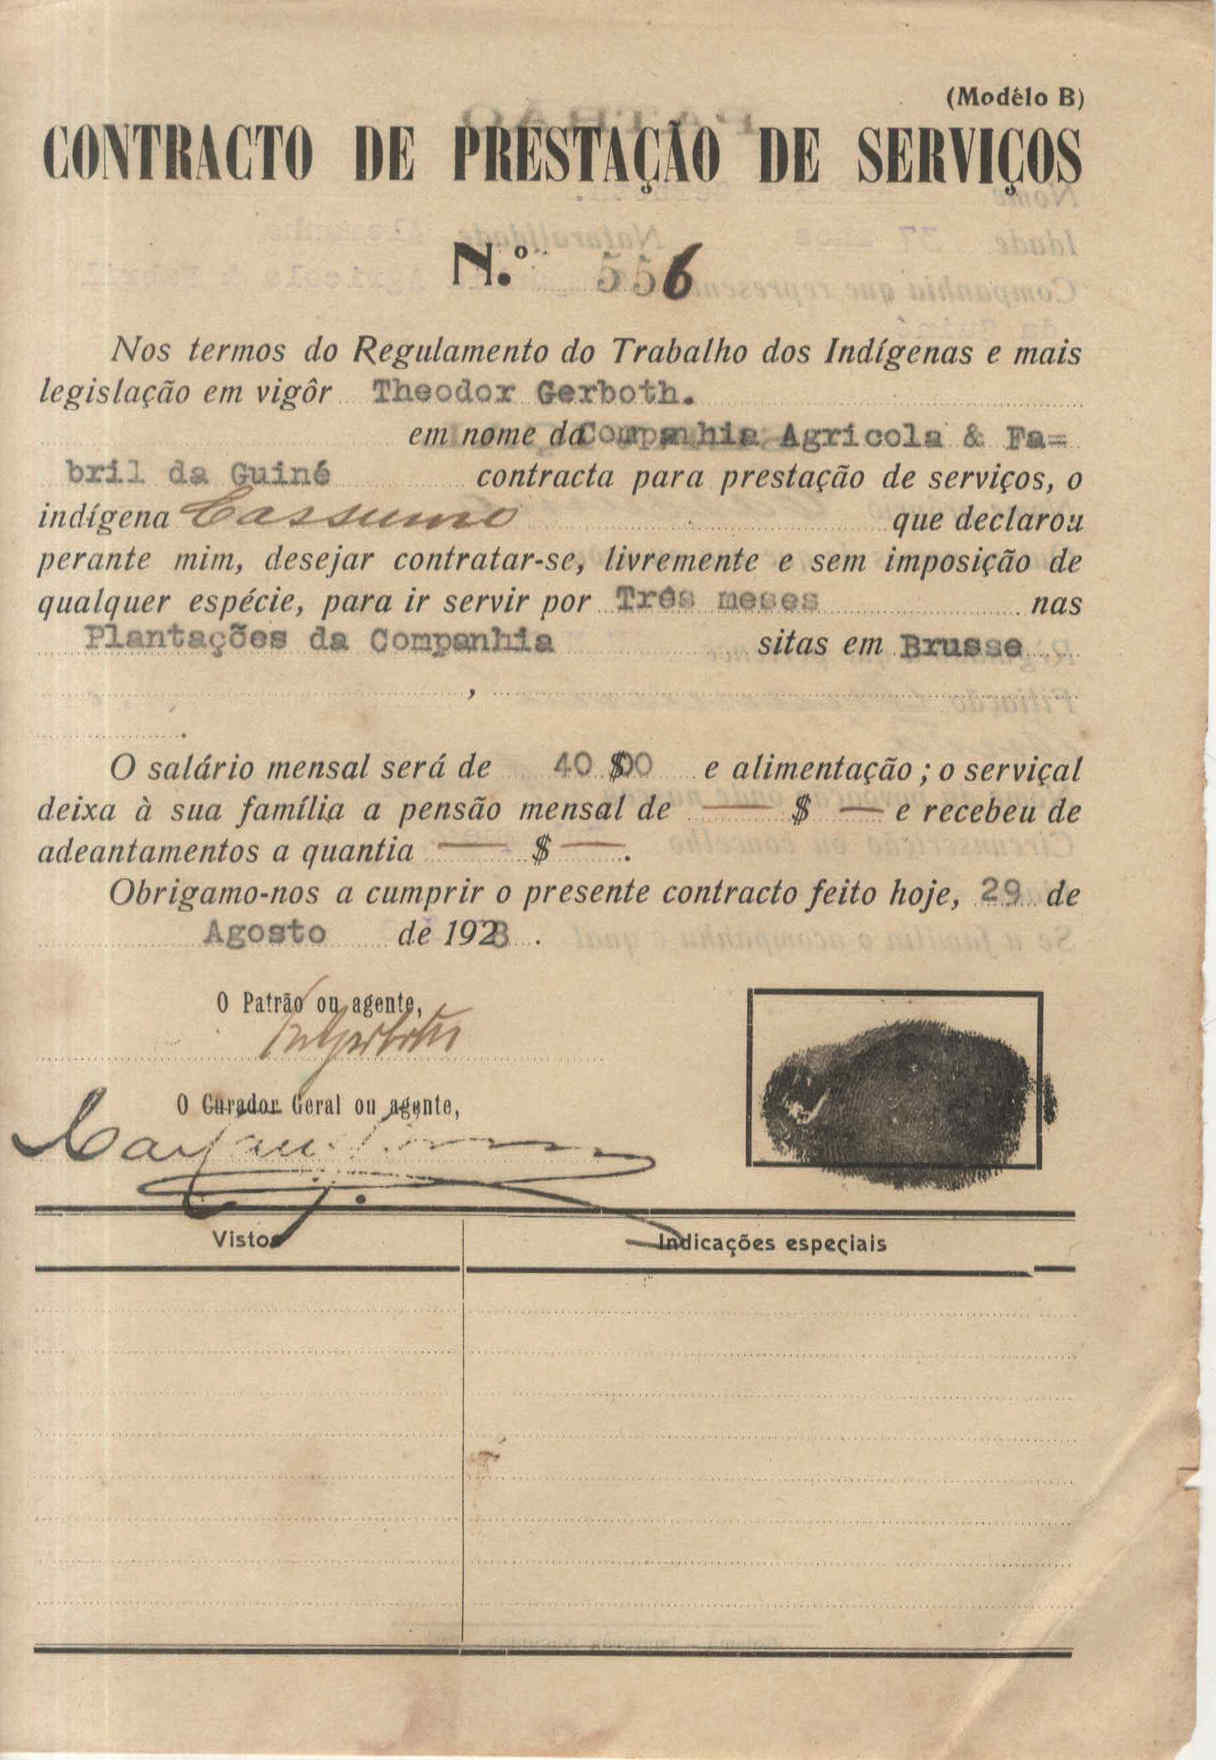 (Modêlo B)
CONTRACTO DE PRESTAÇÃO DE SERVIÇOS
N.º 556
Nos termos do Regulamento do Trabalho dos Indígenas e mais
legislação em vigôr Theodor Gerboth.
em nome da Companhia Agricola & Fa=
bril da Guiné contracta para prestação de serviços, o
indígena Cassumo que declarou
perante mim, desejar contratar-se, livremente e sem imposição de
qualquer espécie, para ir servir por Três meses nas
Plantações da Companhia sitas em Brusse
,
.
O salário mensal será de 40$00 e alimentação; o serviçal
deixa à sua família a pensão mensal de — $ — e recebeu de
adeantamentos a quantia — $ — .
Obrigamo-nos a cumprir o presente contracto feito hoje, 29 de
Agosto de 1928 .
O Patrão ou agente,
O Curador Geral ou agente,
Vistos Indicações especiais